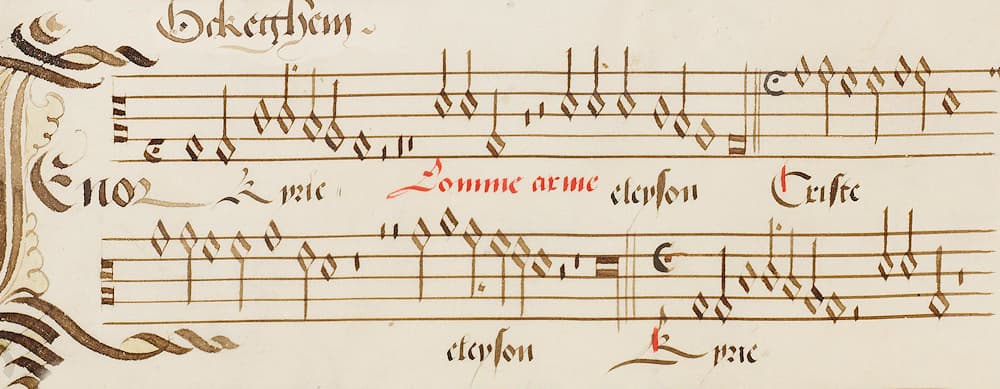 Ockeghem.
Tenor Kyrie Lomme arme eleyson Criste
eleyson Kyrie